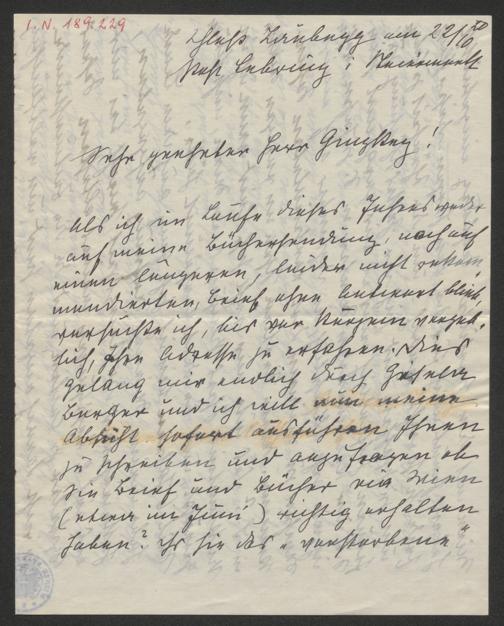 I.N. 189.229
Schloß Laubegg am 22/10 20
Post Lebring i/ Steiermark
Sehr geehrter Herr Ginzkey!
Als ich im Laufe dieses Jahres weder
auf meine Büchersendung, noch auf
einen längeren, leider nicht rekom-
mandierten, Brief ohne Antwort blieb,
versuchte ich, bis vor Kurzem vergeb-
lich, Ihre Adresse zu erfahren. Dies
gelang mir endlich durch
Burger und ich will nun meine
Absicht sofort ausführen Ihnen
zu schreiben und anzufragen ob
Sie Brief und Bücher via Wien
(etwa im Juni) richtig erhalten
haben? Ob Sie das „verstorbene"